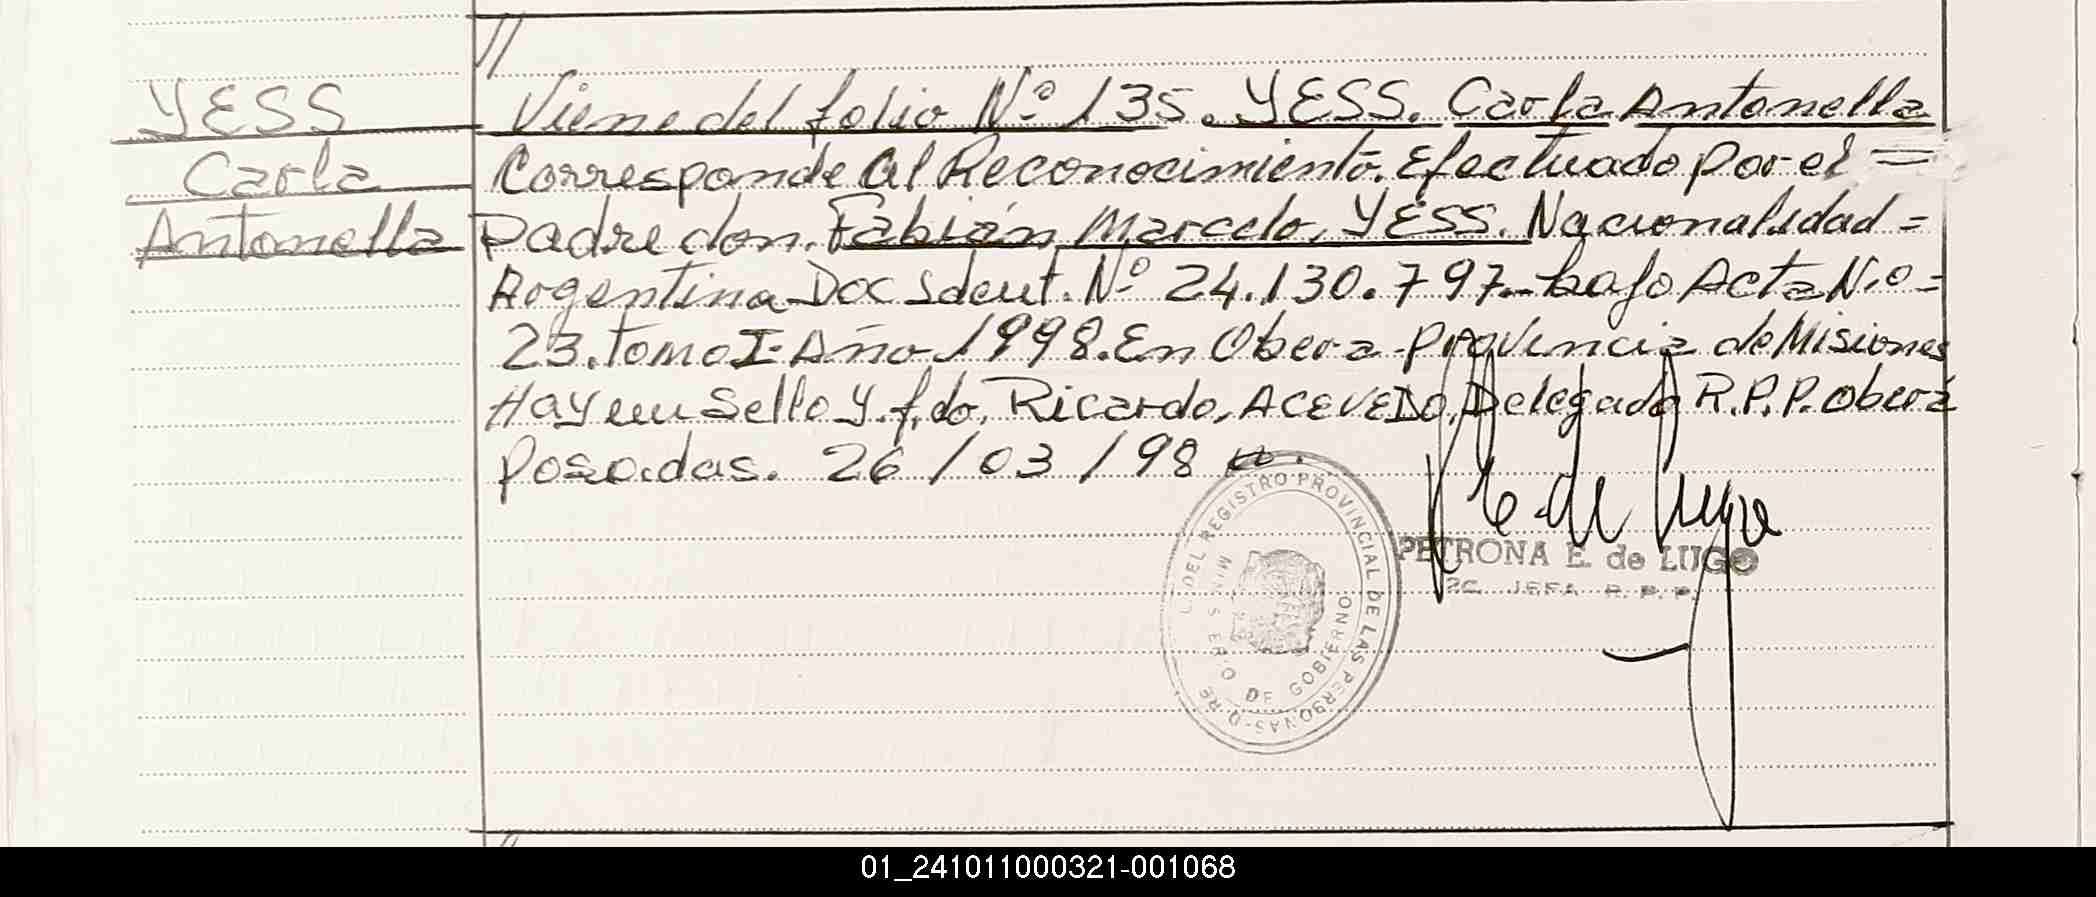 //
YESS
Carla
Antonella
Viene del folio Nº 135. YESS. Carla Antonella
Corresponde al Reconocimiento. Efectuado por el =
Padre don. Fabián Marcelo, YESS. Nacionalidad =
Argentina Doc Ident. Nº 24.130.797.- bajo Acta N.o =
23. tomo I- Año 1998. En Obera - Provincia de Misiones
Hay un Sello y f.do. Ricardo, ACEVEDO, Delegado R.P.P. Oberá
Posadas. 26/03/98
DEL REGISTRO PROVINCIAL DE LAS PERSONAS
MINISTERIO DE GOBIERNO
PETRONA E. de LUGO
JEFA R. P. P.
01_241011000321-001068